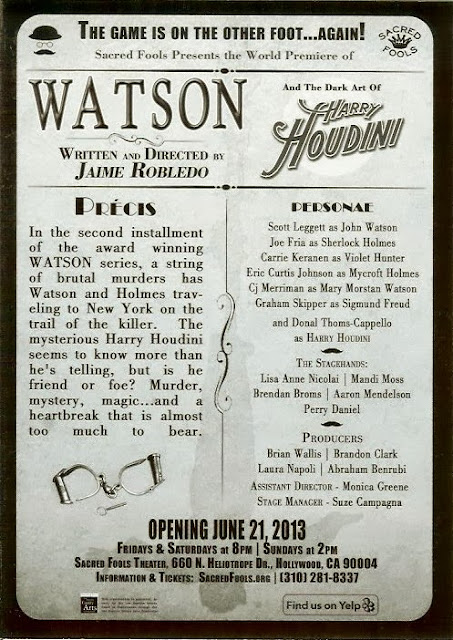 THE GAME IS ON THE OTHER FOOT...AGAIN!
SACRED FOOLS
Sacred Fools Presents the World Premiere of
WATSON
And The Dark Art Of
HARRY
HOUDINI
WRITTEN AND DIRECTED BY
JAIME ROBLEDO
PRÉCIS
In the second installment
of the award winning
WATSON series, a string
of brutal murders has
Watson and Holmes trav-
eling to New York on the
trail of the killer. The
mysterious Harry Houdini
seems to know more than
he's telling, but is he
friend or foe? Murder,
mystery, magic...and a
heartbreak that is almost
too much to bear.
PERSONAE
Scott Leggett as John Watson
Joe Fria as Sherlock Holmes
Carrie Keranen as Violet Hunter
Eric Curtis Johnson as Mycroft Holmes
Cj Merriman as Mary Morstan Watson
Graham Skipper as Sigmund Freud
and Donal Thoms-Cappello
as HARRY HOUDINI
THE STAGEHANDS:
Lisa Anne Nicolai | Mandi Moss
Brendan Broms | Aaron Mendelson
Perry Daniel
PRODUCERS
Brian Wallis | Brandon Clark
Laura Napoli | Abraham Benrubi
ASSISTANT DIRECTOR - Monica Greene
STAGE MANAGER - Suze Campagna
OPENING JUNE 21, 2013
FRIDAYS & SATURDAYS AT 8PM | SUNDAYS AT 2PM
SACRED FOOLS THEATER, 660 N. HELIOTROPE DR., HOLLYWOOD, CA 90004
INFORMATION & TICKETS: SACREDFOOLS.ORG | (310) 281-8337
Arts
Find us on Yelp